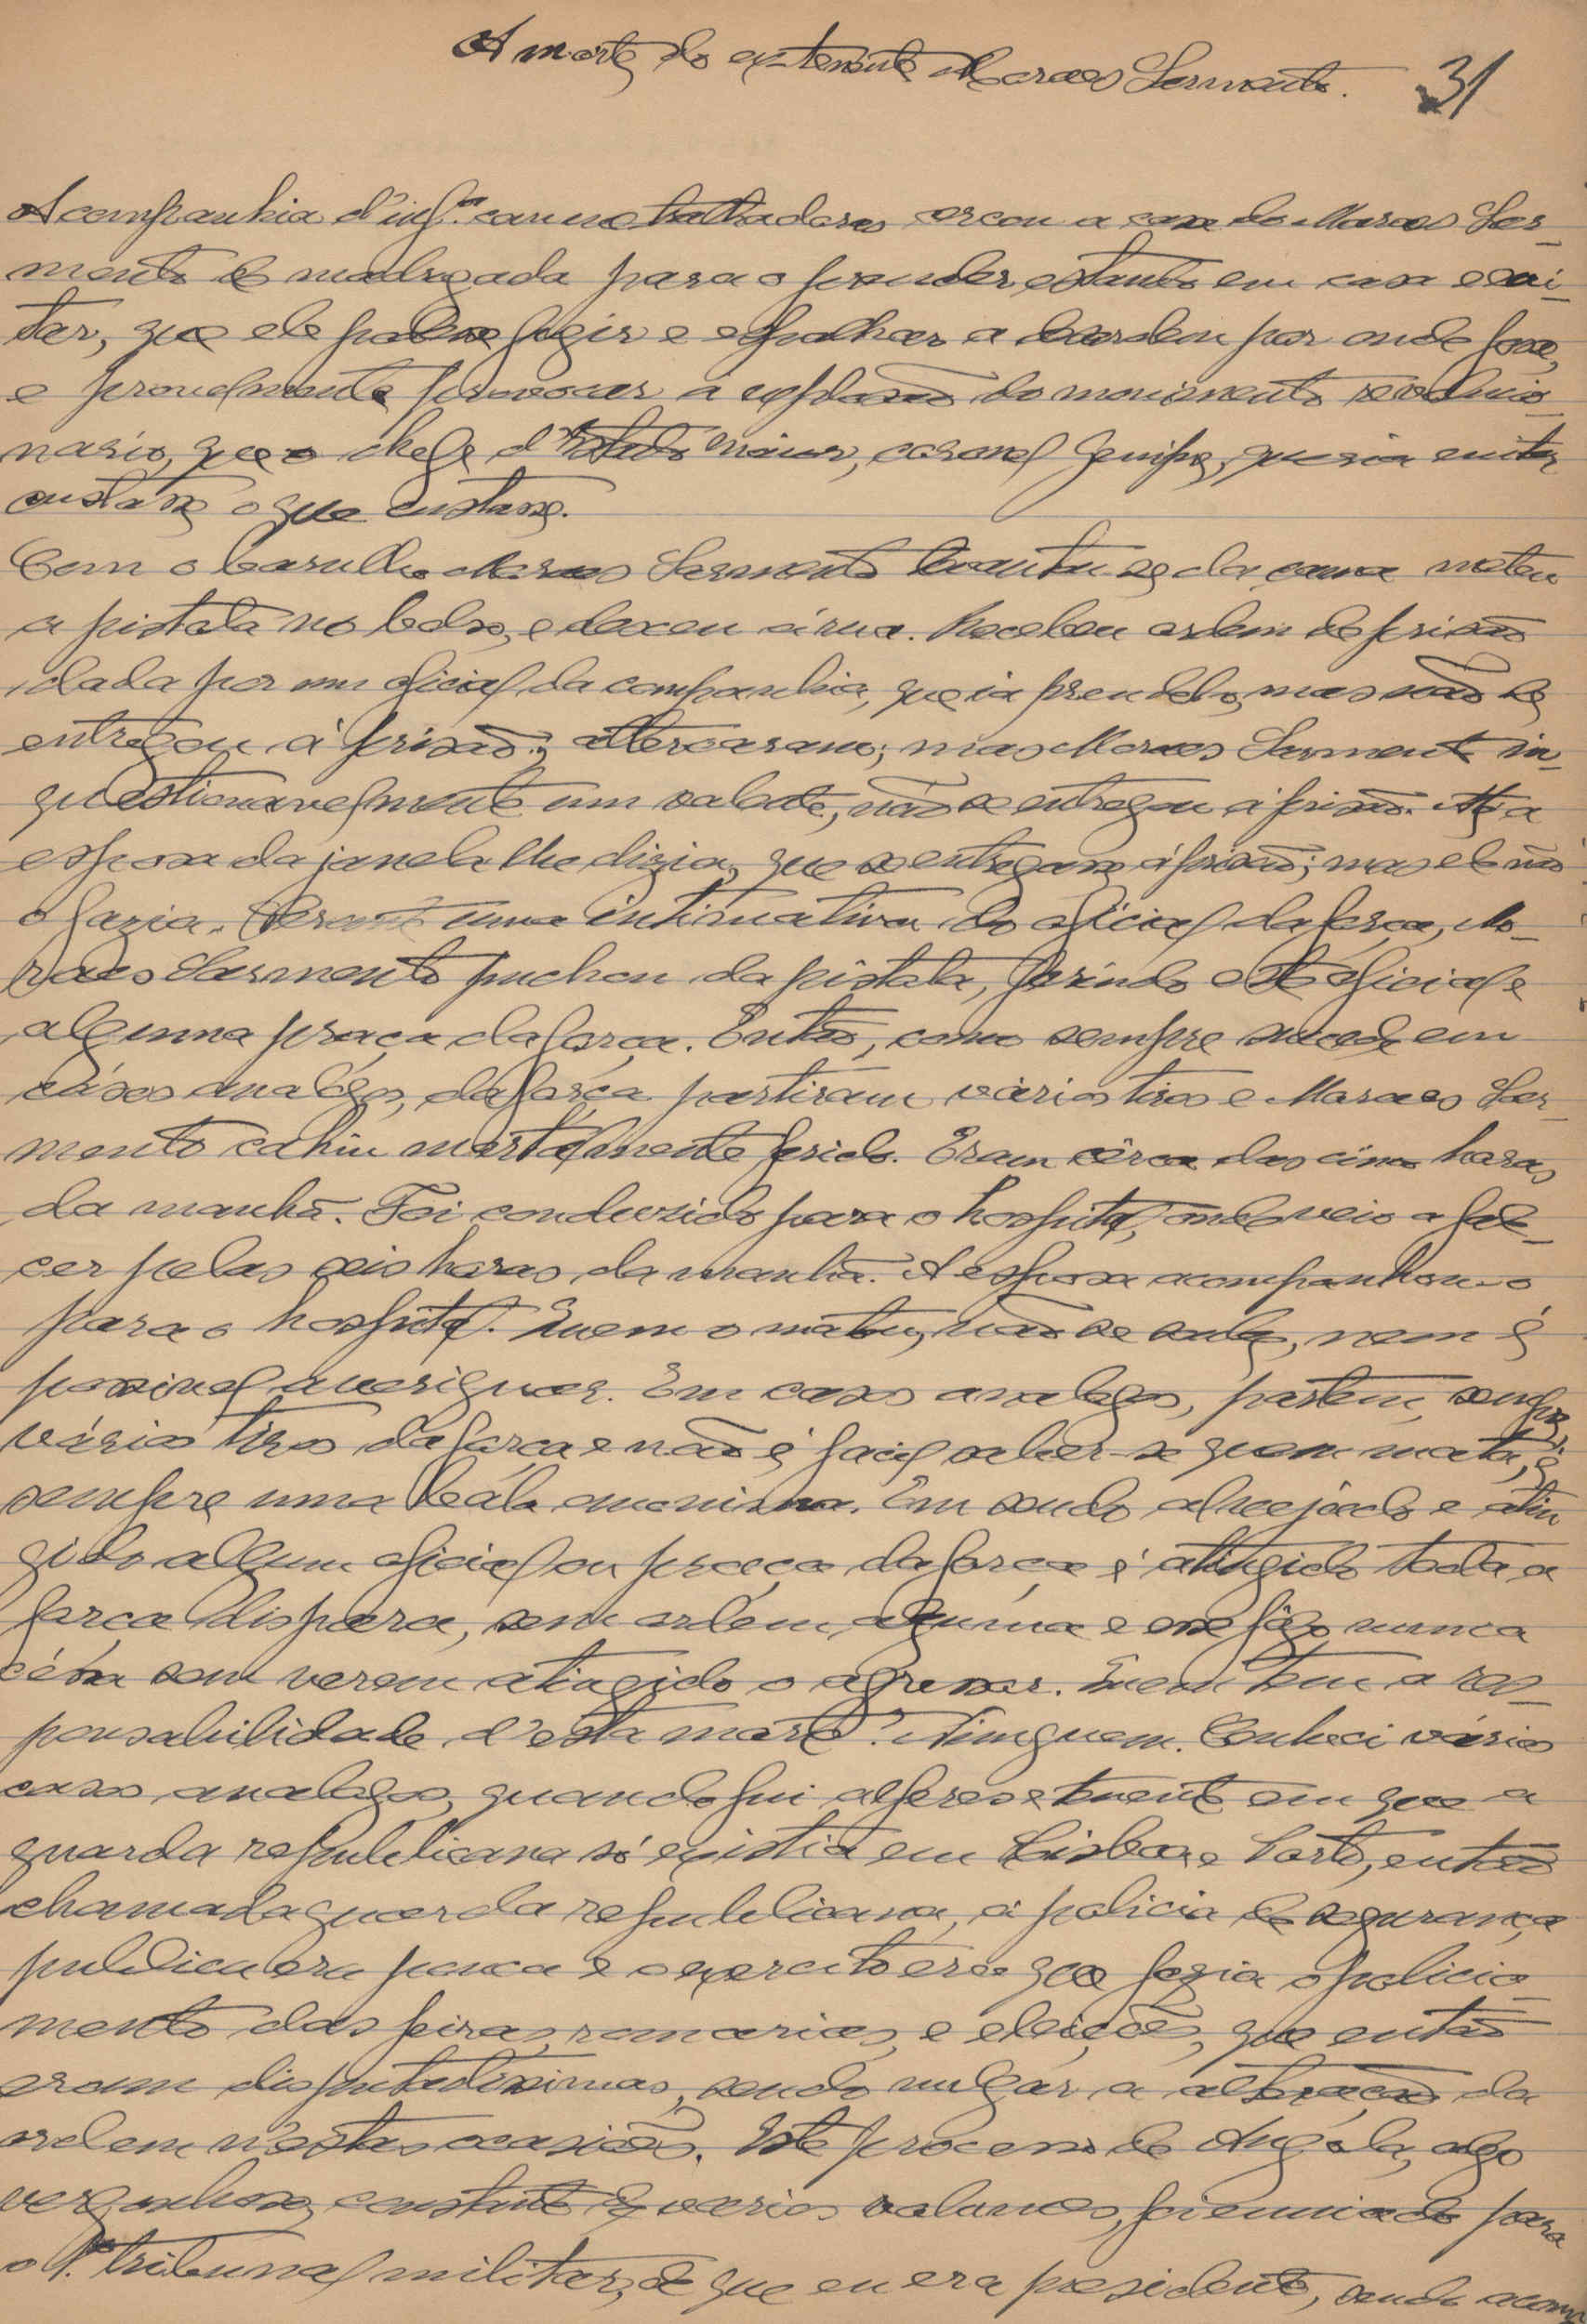 A morte do ex-tenente Moraes Sarmento. 31
A companhia d'inf.ª com metralhadoras cercou a casa de Moraes Sar-
mento de madrugada para o prender, estando em casa e evi-
tar, que ele podesse fugir e espalhar a desordem por onde fosse,
e provavelmente provocar a explosão do movimento revolucio-
nario, que o chefe d'Estado maior, coronel Genipro, queria evitar
custasse o que custasse.
Com o barulho Moraes Sarmento levantou-se da cama meteu
a pistola no bolso, e desceu á rua. Recebeu ordem de prisão
dada por um oficial da companhia, que ia prendelo, mas não se
entregou á prisão; altercaram; mas Moraes Sarmento in-
questionavelmente um valente, não se entregou á prisão. Até a
esposa da janela lhe dizia, que se entregasse á prisão; mas ele não
o fazia. Perante uma intimativa do oficial da força, Mo-
raes Sarmento puchou da pistola, ferindo este oficial e
alguma praça da força. Então, como sempre sucede em
cásos análogos, da força partiram vários tiros e Moraes Sar-
mento cahiu mortalmente ferido. Eram cêrca das cinco horas
da manhã. Foi conduzido para o hospital, onde veio a fale-
cer pelas seis horas da manhã. A esposa acompanhou-o
para o hospital. Quem o matou, não se sabe, nem é
possivel averiguar. Em casos analogos, partem sempre
vários tiros da força e não é facil saber-se quem mata, é
sempre uma bála anonima. Em sendo alvejado e atin
gido algum oficial ou praça da força é atingido toda a
força dispara, sem ordem alguma e esse fôgo nunca
céssa sem verem atingido o agressor. Quem tem a res-
ponsabilidade d'esta morte? Ninguem. Conheci vários
casos analogos, quando fui alferes e tenente em que a
guarda republicana só existia em Lisboa e Porto, então
chamada guarda republicana, a policia de segurança
publica era pouca e o exercito era que fazia o policia-
mento das feiras, romarias, e eleições, que então
eram disputadissimas, sendo vulgar a alteração da
ordem n'estas ocasiões. Este processo de Angola, algo
vergonhoso, constante de varios volumes, foi enviado para
o 1.º tribunal militar, de que eu era presidente, sendo acom